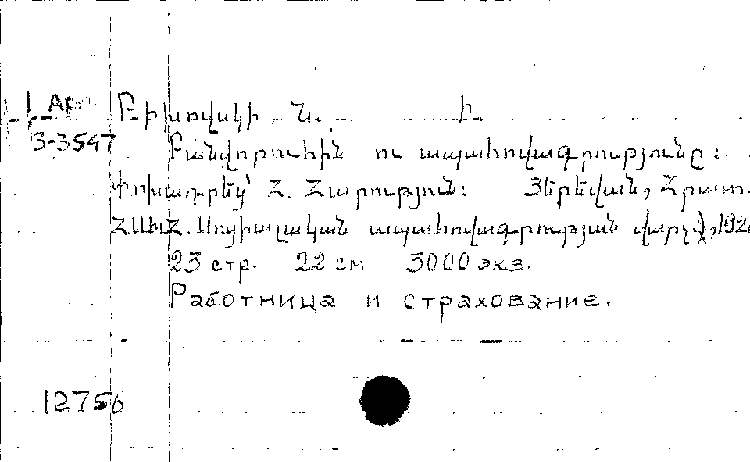 Բիխովսկի Ն. Ի.
3-3547
Բանվորուհին ու ապահովագրությունը:
Փոխադրեց՝ Հ. Հարություն: Յերեվան, Հրատ.
ՀՍԽՀ. Սոցիալական ապահովագրության վարչ., 192
23 стр. 22 см 3000 экз.
Работница и страхование.
12756